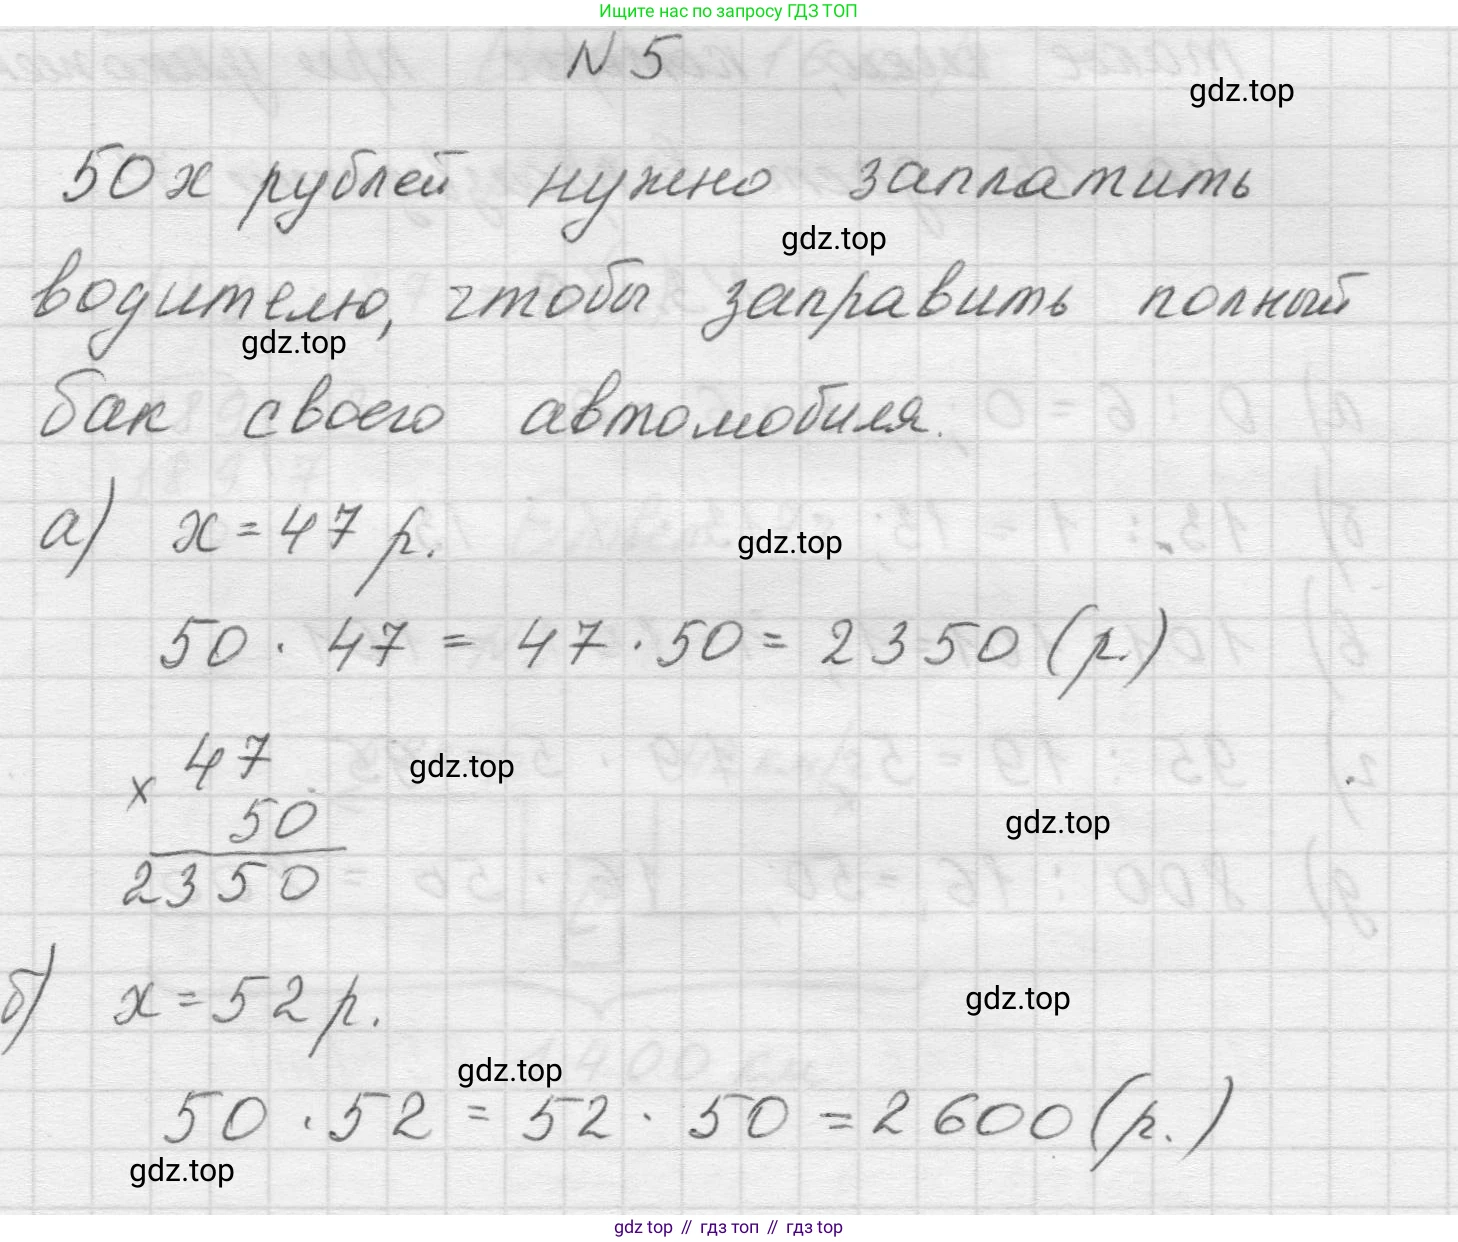 Ищите нас по запросу ГДЗ ТОП
N 5
gdz.top
50x рублей нужно заплатить
gdz.top
водителю, чтобы заправить полный
gdz.top
бак своего автомобиля.
а) x = 47 р.
gdz.top
50 · 47 = 47 · 50 = 2350 (р.)
47
gdz.top
x
50
gdz.top
2350
б) x = 52 р.
gdz.top
gdz.top
50 · 52 = 52 · 50 = 2600 (р.)
gdz.top
gdz top // гдз топ // гдз top